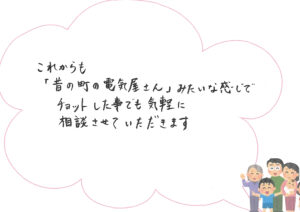 これからも
「昔の町の電気屋さん」みたいな感じで
チョットした事でも気軽に
相談させていただきます